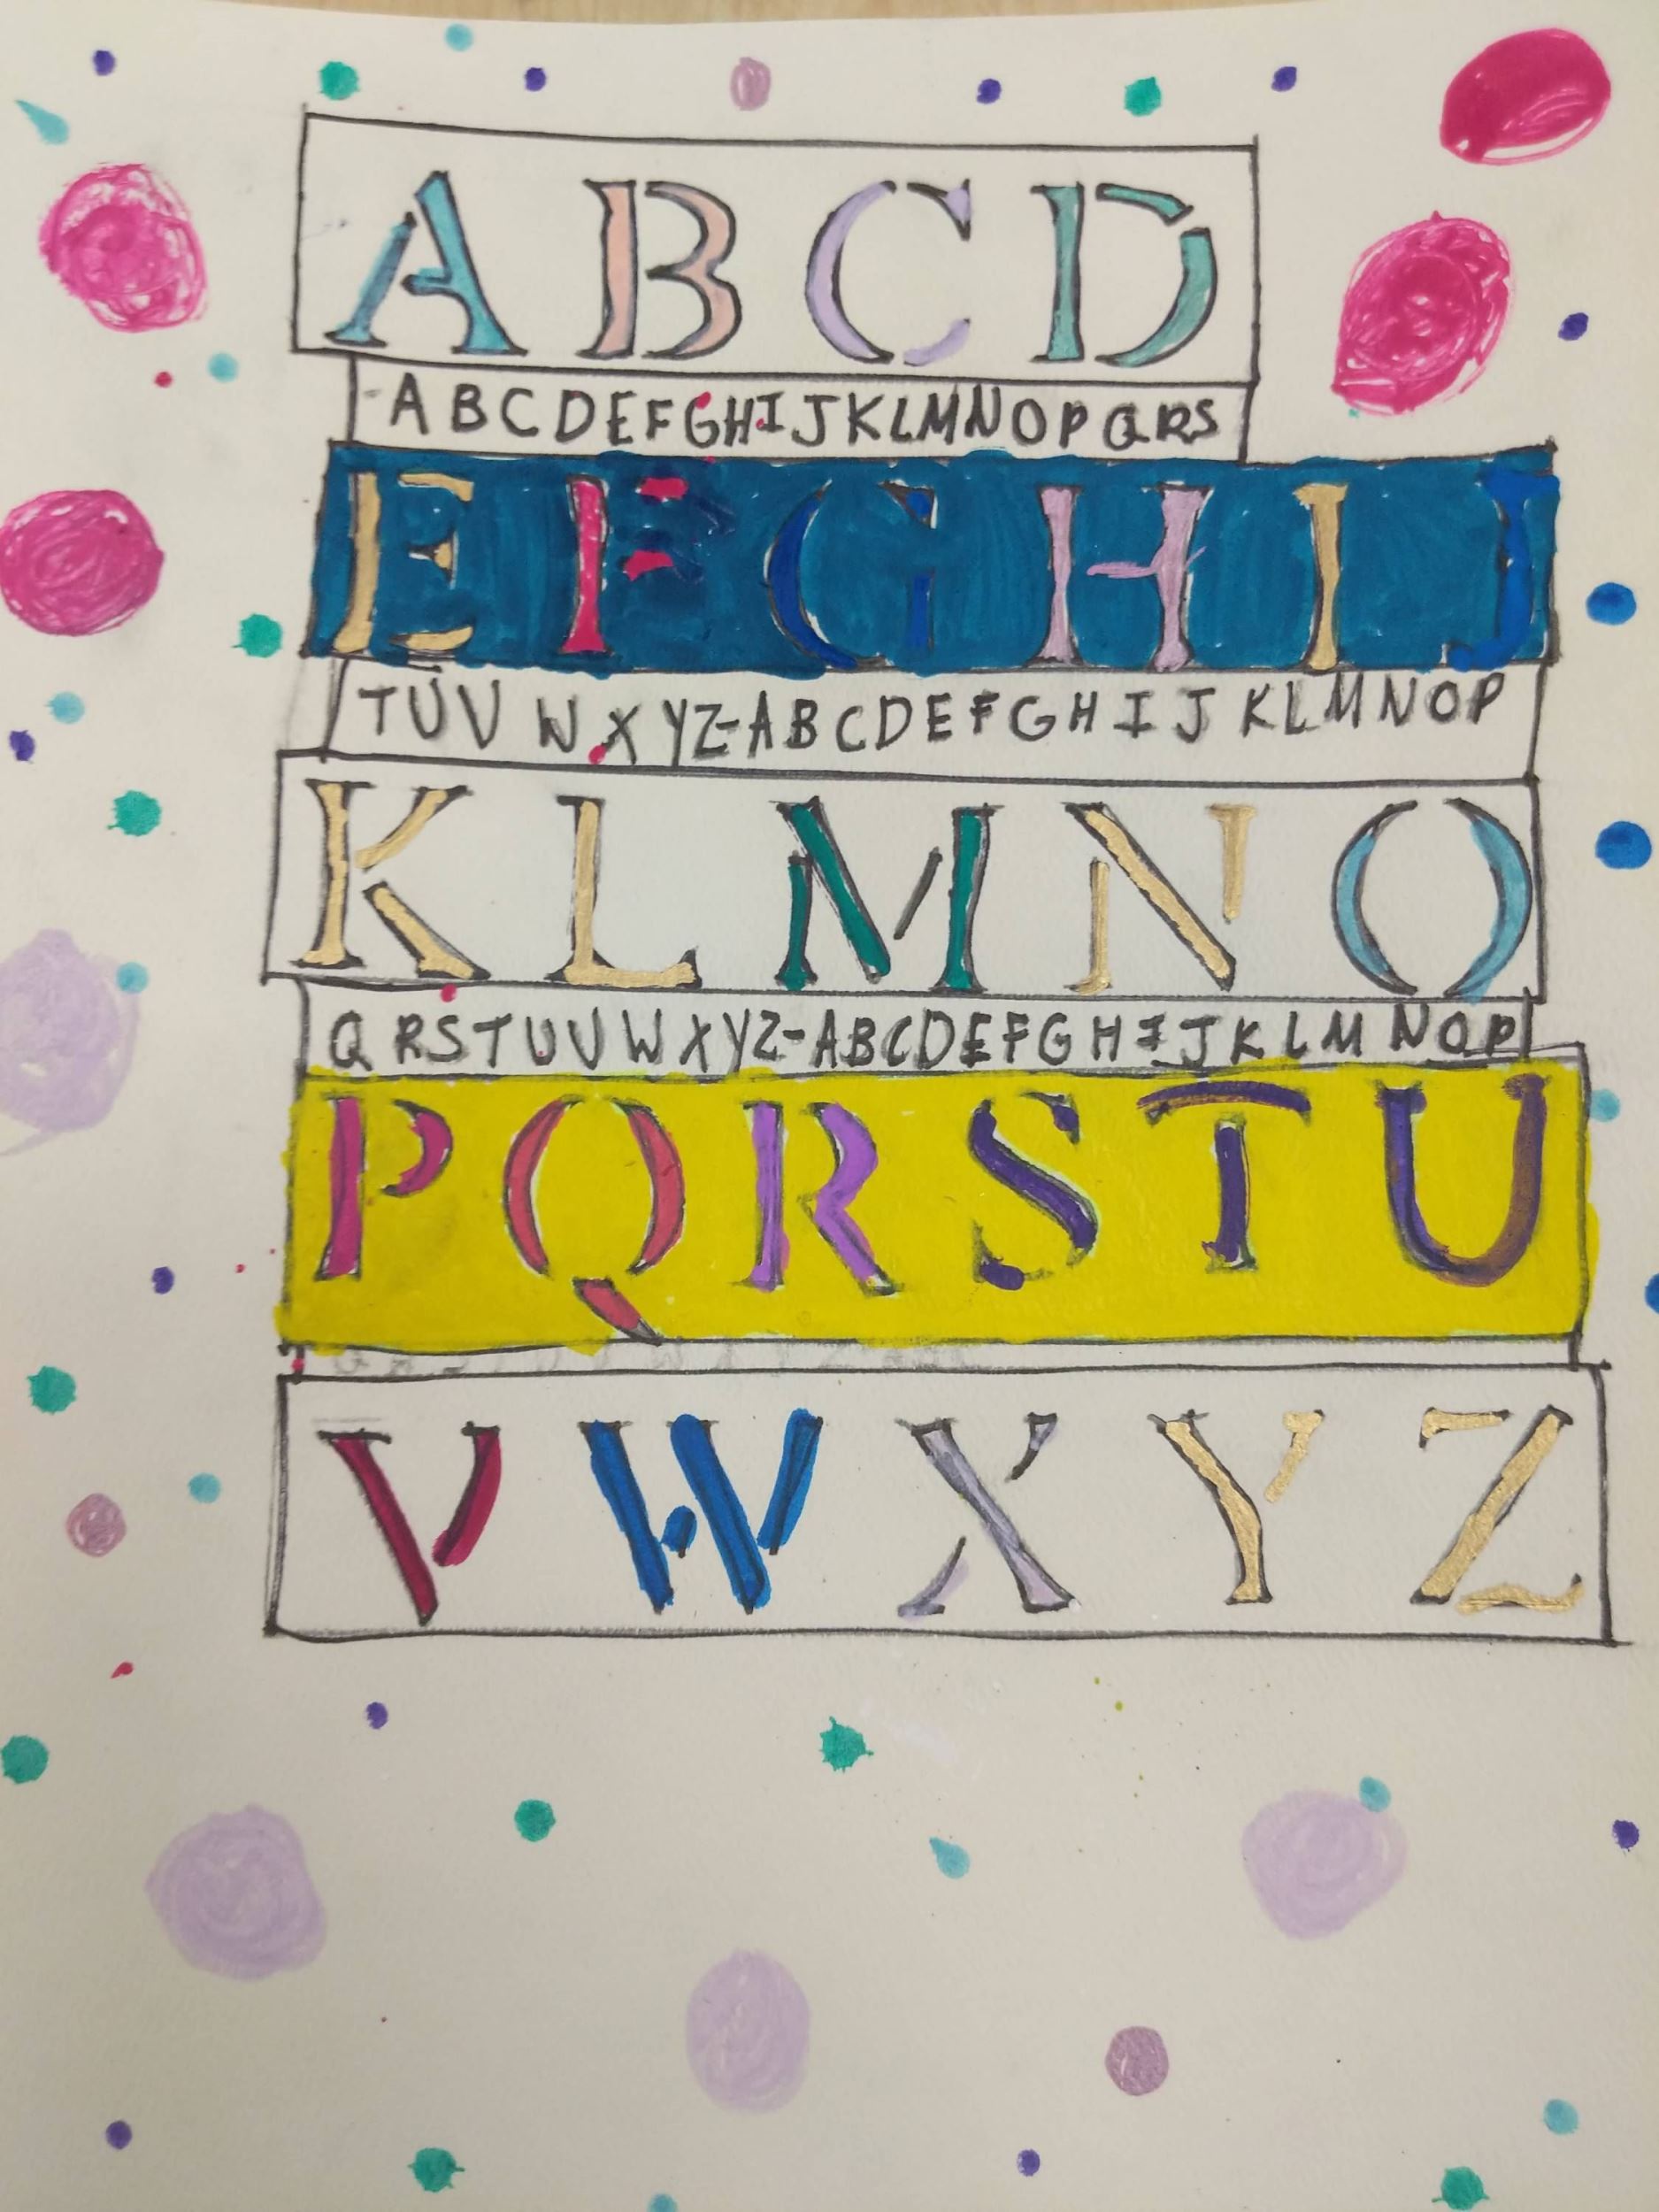 A B C D
-A B C D E F G H I J K L M N O P Q R S
E F G H I J
T U V W X Y Z-A B C D E F G H I J K L M N O P
K L M N O
Q R S T U V W X Y Z-A B C D E F G H I J K L M N O P
P Q R S T U
V W X Y Z